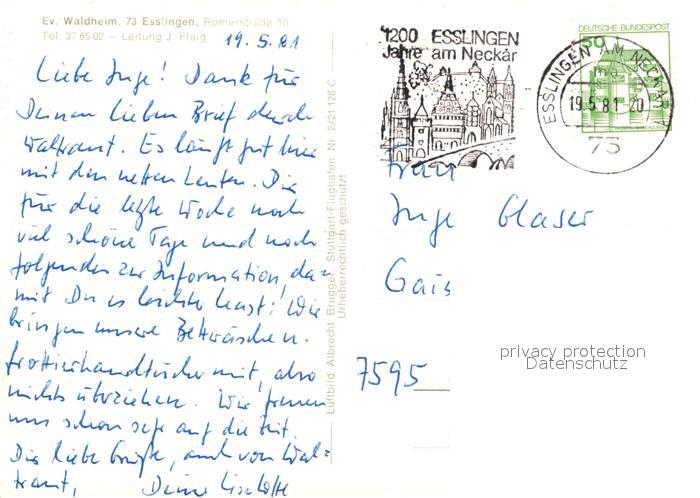 Ev. Waldheim, 73 Esslingen, Römerstraße 10
Tel. 37 65 02 – Leitung J. Flaig
19.5.81
Liebe Inge! Dank für
Deinen lieben Brief durch
Waltraut. Es läuft gut hier
mit den netten Leuten. Dir
für die letzte Woche noch
viel schöne Tage und noch
folgendes zur Information, da=
mit Du es leichter hast: Wir
bringen unsere Bettwäsche u.
Frottierhandtücher mit, also
nichts überziehen. Wir freuen
uns schon sehr auf die Zeit.
Dir liebe Grüße, auch von Wal=
traut, Deine Liselotte
Luftbild Albrecht Brugger, Stuttgart-Flughafen Nr. 2/21 128 C
Urheberrechtlich geschützt!
1200 ESSLINGEN
Jahre am Neckar
DEUTSCHE BUNDESPOST
50
ESSLINGEN AM NECKAR
19.5.81 20
73
Frau
Inge Glaser
Gais
7595
privacy protection
Datenschutz